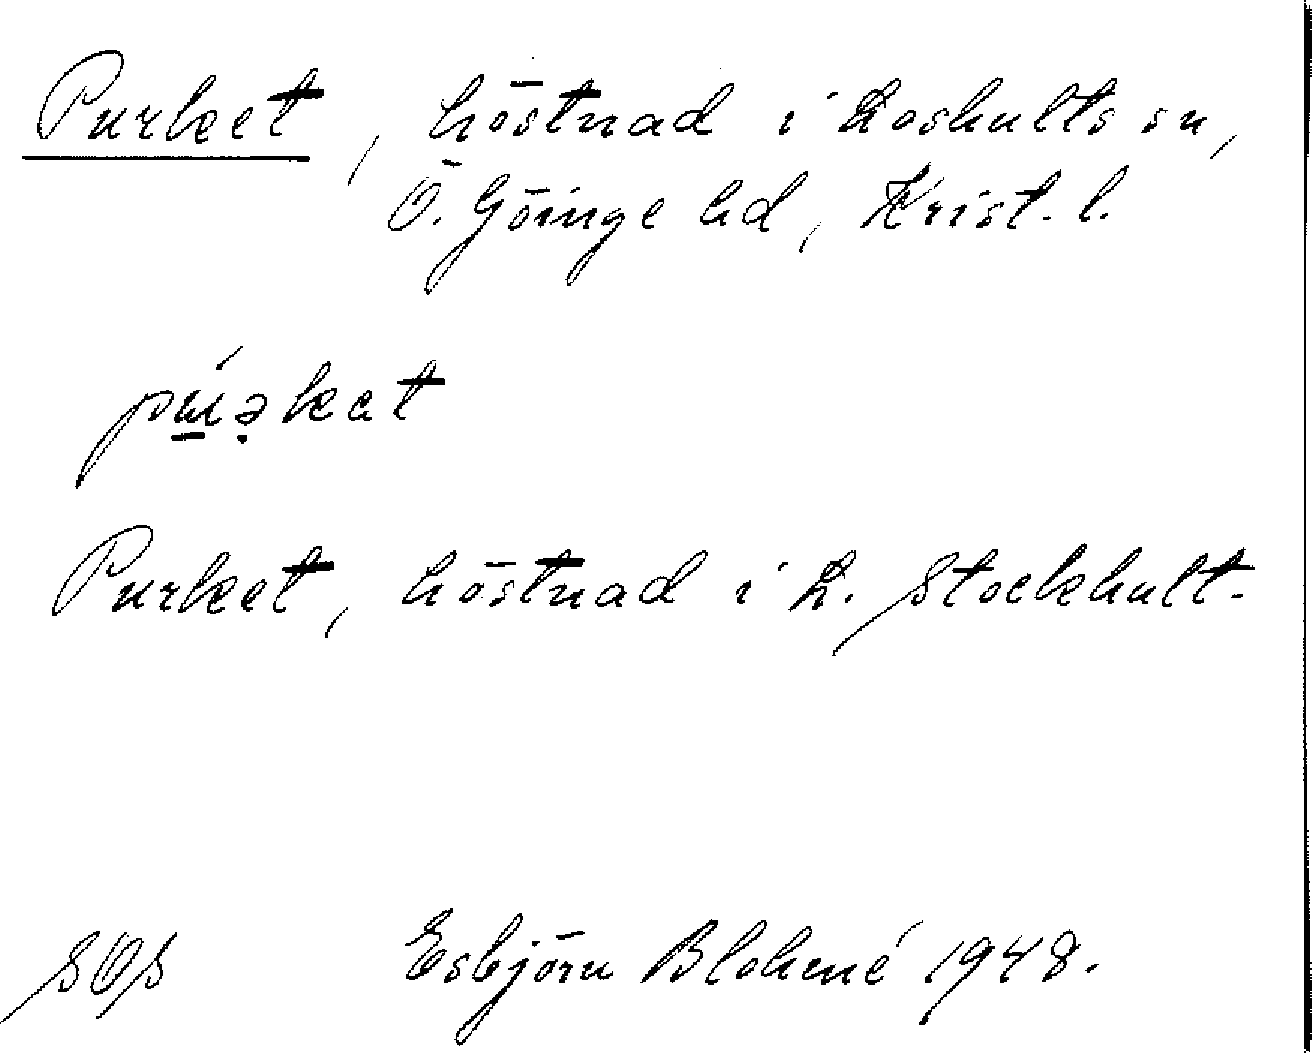 Purket, höstnad i Loshults sn,
Ö. Göinge hd, Krist. l.
Purket, höstnad i L. Stockhult.
SOS Esbjörn Blohmé 1948.